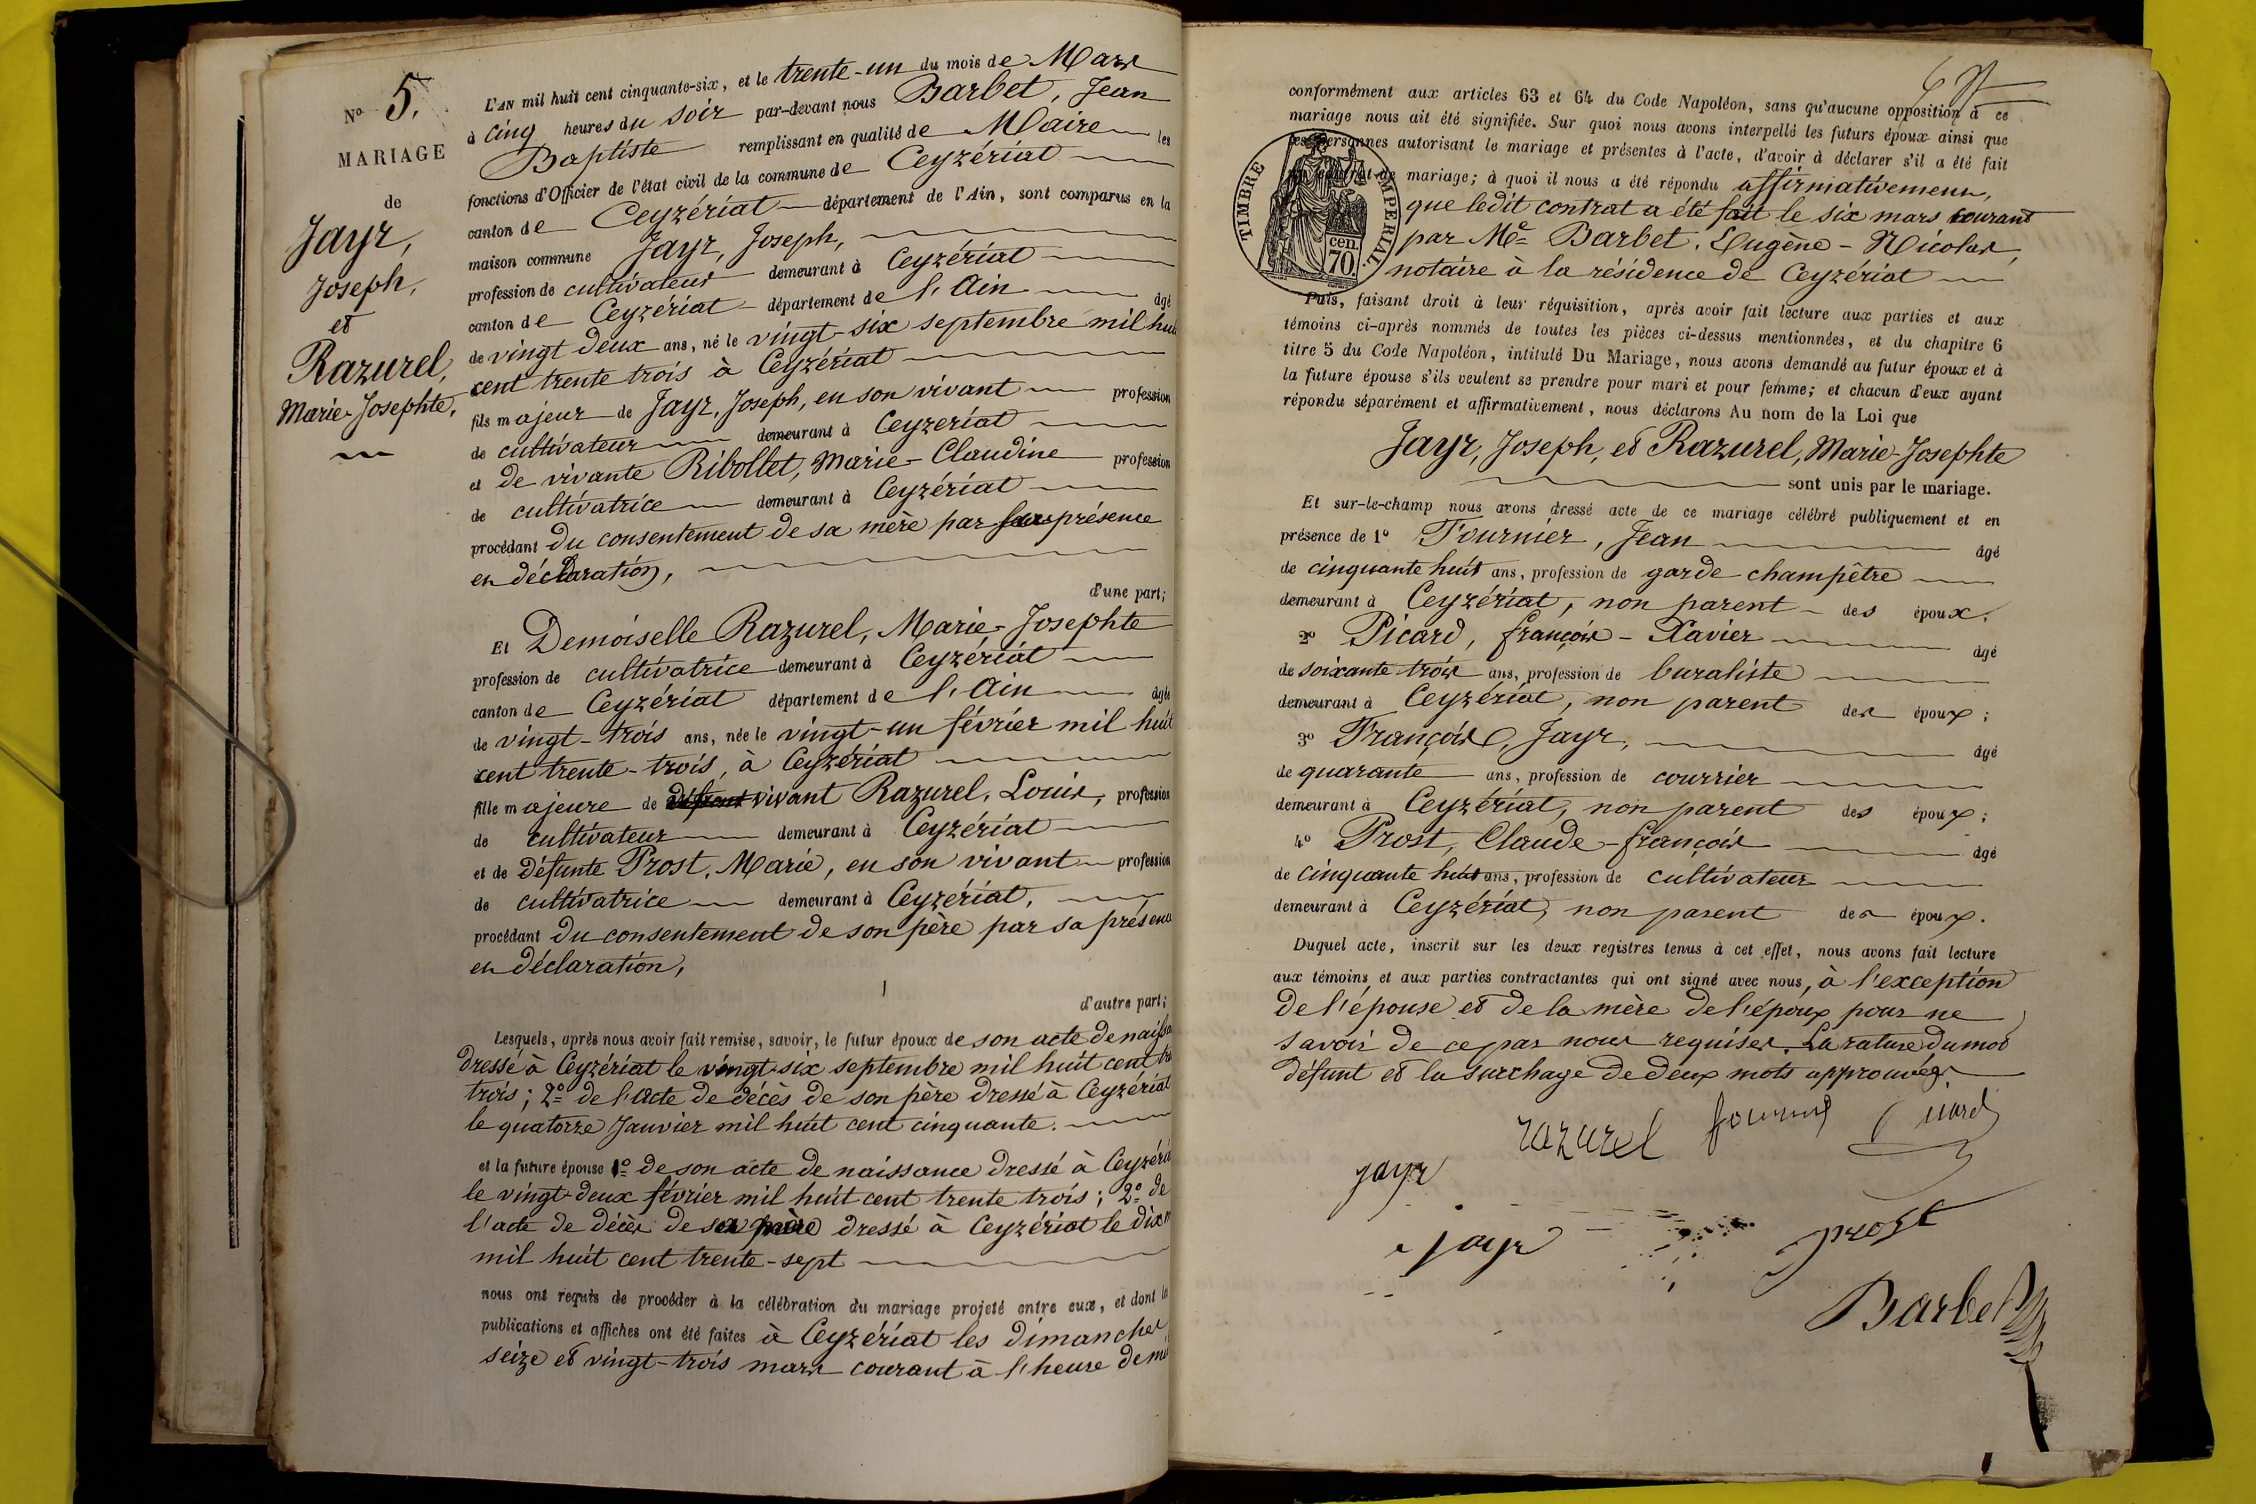 Nº 5.
MARIAGE
de
Jayr,
Joseph,
et
Razurel,
Marie-Josephte,
L'AN mil huit cent cinquante-six, et le trente-un du mois de Mars
à cinq heures du soir par-devant nous Barbet, Jean
Baptiste remplissant en qualité de Maire les
fonctions d'Officier de l'état civil de la commune de Ceyzériat
canton de Ceyzériat département de l'Ain, sont comparus en la
maison commune Jayr, Joseph,
profession de cultivateur demeurant à Ceyzériat
canton de Ceyzériat département de l'Ain âgé
de vingt deux ans, né le vingt-six septembre mil huit
cent trente trois à Ceyzériat
fils majeur de Jayr, Joseph, en son vivant profession
de cultivateur demeurant à Ceyzeriat
et de vivante Ribollet, Marie-Claudine profession
de cultivatrice demeurant à Ceyzériat
procédant du consentement de sa mère par sa présence
et déclaration,
d'une part;
Et Demoiselle Razurel, Marie-Josephte
profession de cultivatrice demeurant à Ceyzériat
canton de Ceyzériat département de l'Ain âgée
de vingt-trois ans, née le vingt-un février mil huit
cent trente-trois, à Ceyzériat
fille majeure de défunt vivant Razurel, Louis, profession
de cultivateur demeurant à Ceyzériat
et de défunte Prost, Marie, en son vivant profession
de cultivatrice demeurant à Ceyzériat,
procédant du consentement de son père par sa présence
et déclaration,
d'autre part;
Lesquels, après nous avoir fait remise, savoir, le futur époux de son acte de naissa
dressé à Ceyzériat le vingt-six septembre mil huit cent tre
trois; 2º de l'acte de décès de son père dressé à Ceyzériat
le quatorze Janvier mil huit cent cinquante.
et la future épouse 1º de son acte de naissance dressé à Ceyzéria
le vingt-deux février mil huit cent trente trois; 2º de
l'acte de décès de sa mère dressé à Ceyzériat le dix
mil huit cent trente-sept
nous ont requis de procéder à la célébration du mariage projeté entre eux, et dont les
publications et affiches ont été faites à Ceyzériat les dimanches
seize et vingt-trois mars courant à l'heure de mi
conformément aux articles 63 et 64 du Code Napoléon, sans qu'aucune opposition à ce
mariage nous ait été signifiée. Sur quoi nous avons interpellé les futurs époux ainsi que
les personnes autorisant le mariage et présentes à l'acte, d'avoir à déclarer s'il a été fait
un contrat de mariage; à quoi il nous a été répondu affirmativement,
que ledit contrat a été fait le six mars courant
par Me Barbet, Eugène-Nicolas,
notaire à la résidence de Ceyzériat
TIMBRE IMPERIAL.
cen.
70.
Puis, faisant droit à leur réquisition, après avoir fait lecture aux parties et aux
témoins ci-après nommés de toutes les pièces ci-dessus mentionnées, et du chapitre 6
titre 5 du Code Napoléon, intitulé Du Mariage, nous avons demandé au futur époux et à
la future épouse s'ils veulent se prendre pour mari et pour femme; et chacun d'eux ayant
répondu séparément et affirmativement, nous déclarons Au nom de la Loi que
Jayr, Joseph, et Razurel, Marie-Josephte
sont unis par le mariage.
Et sur-le-champ nous avons dressé acte de ce mariage célébré publiquement et en
présence de 1º Fournier, Jean âgé
de cinquante huit ans, profession de garde champêtre
demeurant à Ceyzériat, non parent des époux.
2º Picard, François-Xavier âgé
de soixante trois ans, profession de buraliste
demeurant à Ceyzériat, non parent des époux;
3º François, Jayr, âgé
de quarante ans, profession de courrier
demeurant à Ceyzériat, non parent des époux;
4º Prost, Claude-françois âgé
de cinquante huit ans, profession de cultivateur
demeurant à Ceyzériat, non parent des époux.
Duquel acte, inscrit sur les deux registres tenus à cet effet, nous avons fait lecture
aux témoins et aux parties contractantes qui ont signé avec nous, à l'exception
de l'épouse et de la mère de l'époux pour ne
savoir de ce par nous requises. La rature du mot
défunt et la surchage de deux mots approuvés.
razurel fournié Picard
jayr
jayr prost
Barbet